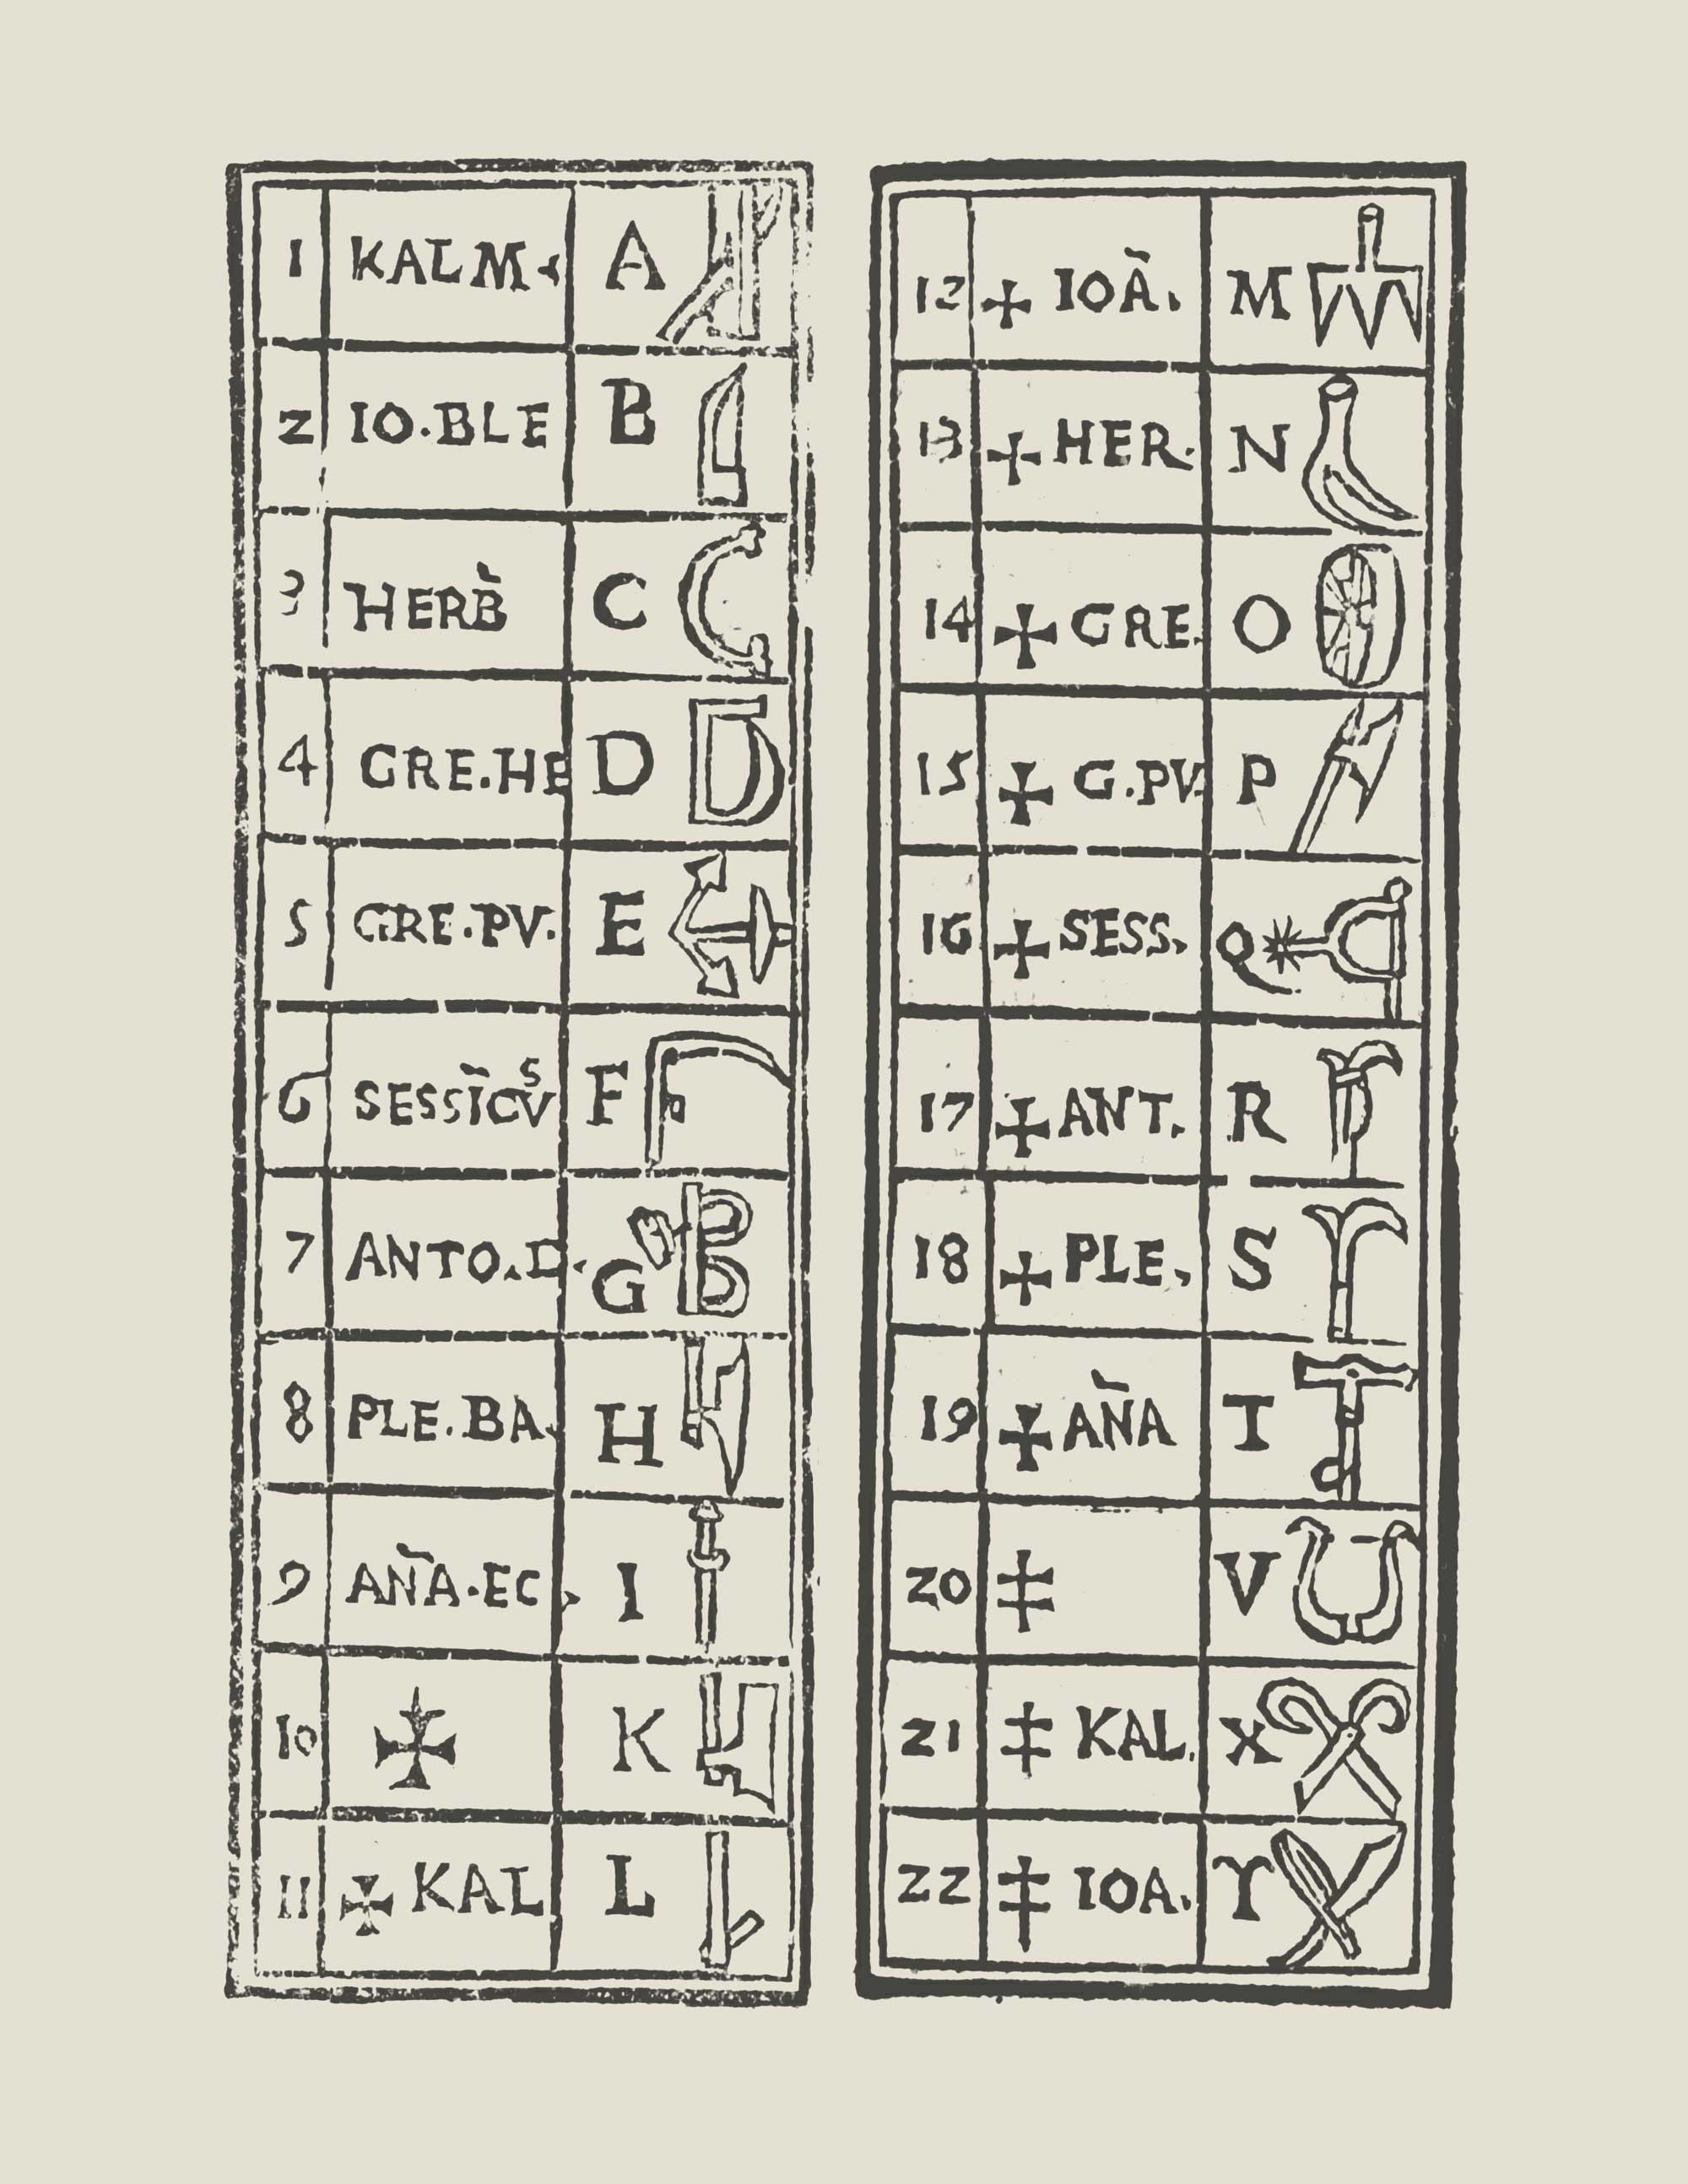 1 KALM. A
2 IO.BLE B
3 HERB̃ C
4 GRE.HE D
5 GRE.PV. E
6 SESSĨCVS F
7 ANTO.D. G
8 PLE.BA. H
9 AÑA.EC. I
10 ✠ K
11 ✠ KAL L
12 ✠ IOÃ. M
13 ✠ HER. N
14 ✠ GRE. O
15 ✠ G.PV. P
16 ✠ SESS. Q
17 ✠ ANT. R
18 ✠ PLE. S
19 ✠ AÑA T
20 ‡ V
21 ‡ KAL. X
22 ‡ IOA. Y